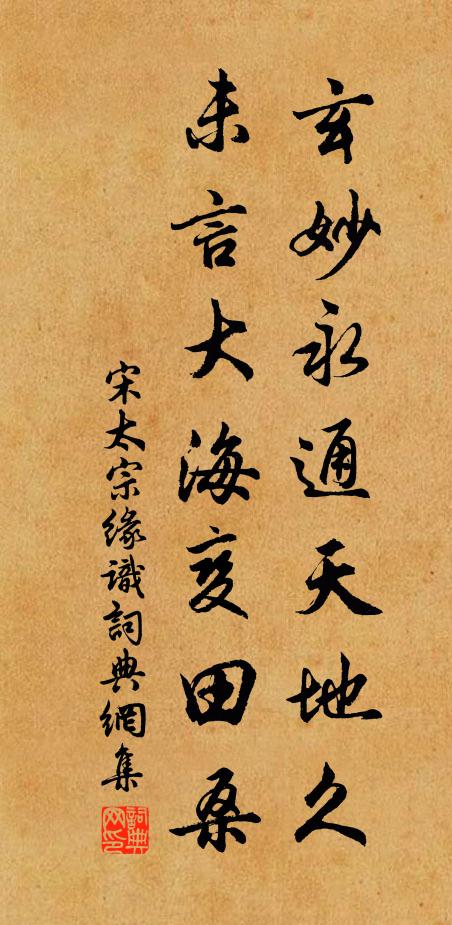 玄妙永通天地久
未言大海变田桑
宋太宗缘識詞典網集
詞典网印